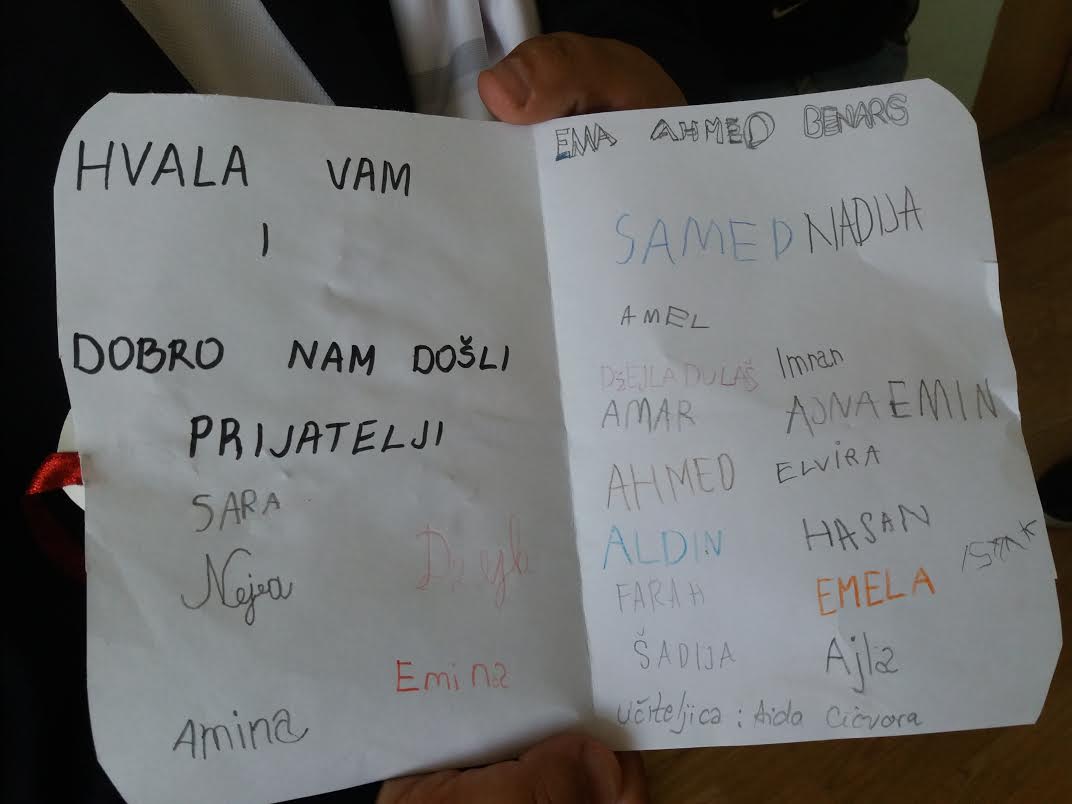 HVALA VAM
I
DOBRO NAM DOŠLI
PRIJATELJI
SARA
Nejra
Emina
Amina
EMA AHMED
SAMED NADIJA
AMEL
DŽEJLA DULAŠ Imran
AMAR AJNA EMIN
AHMED ELVIRA
ALDIN HASAN
FARAH EMELA
ŠADIJA Ajla
Učiteljica : Aida Cičvora